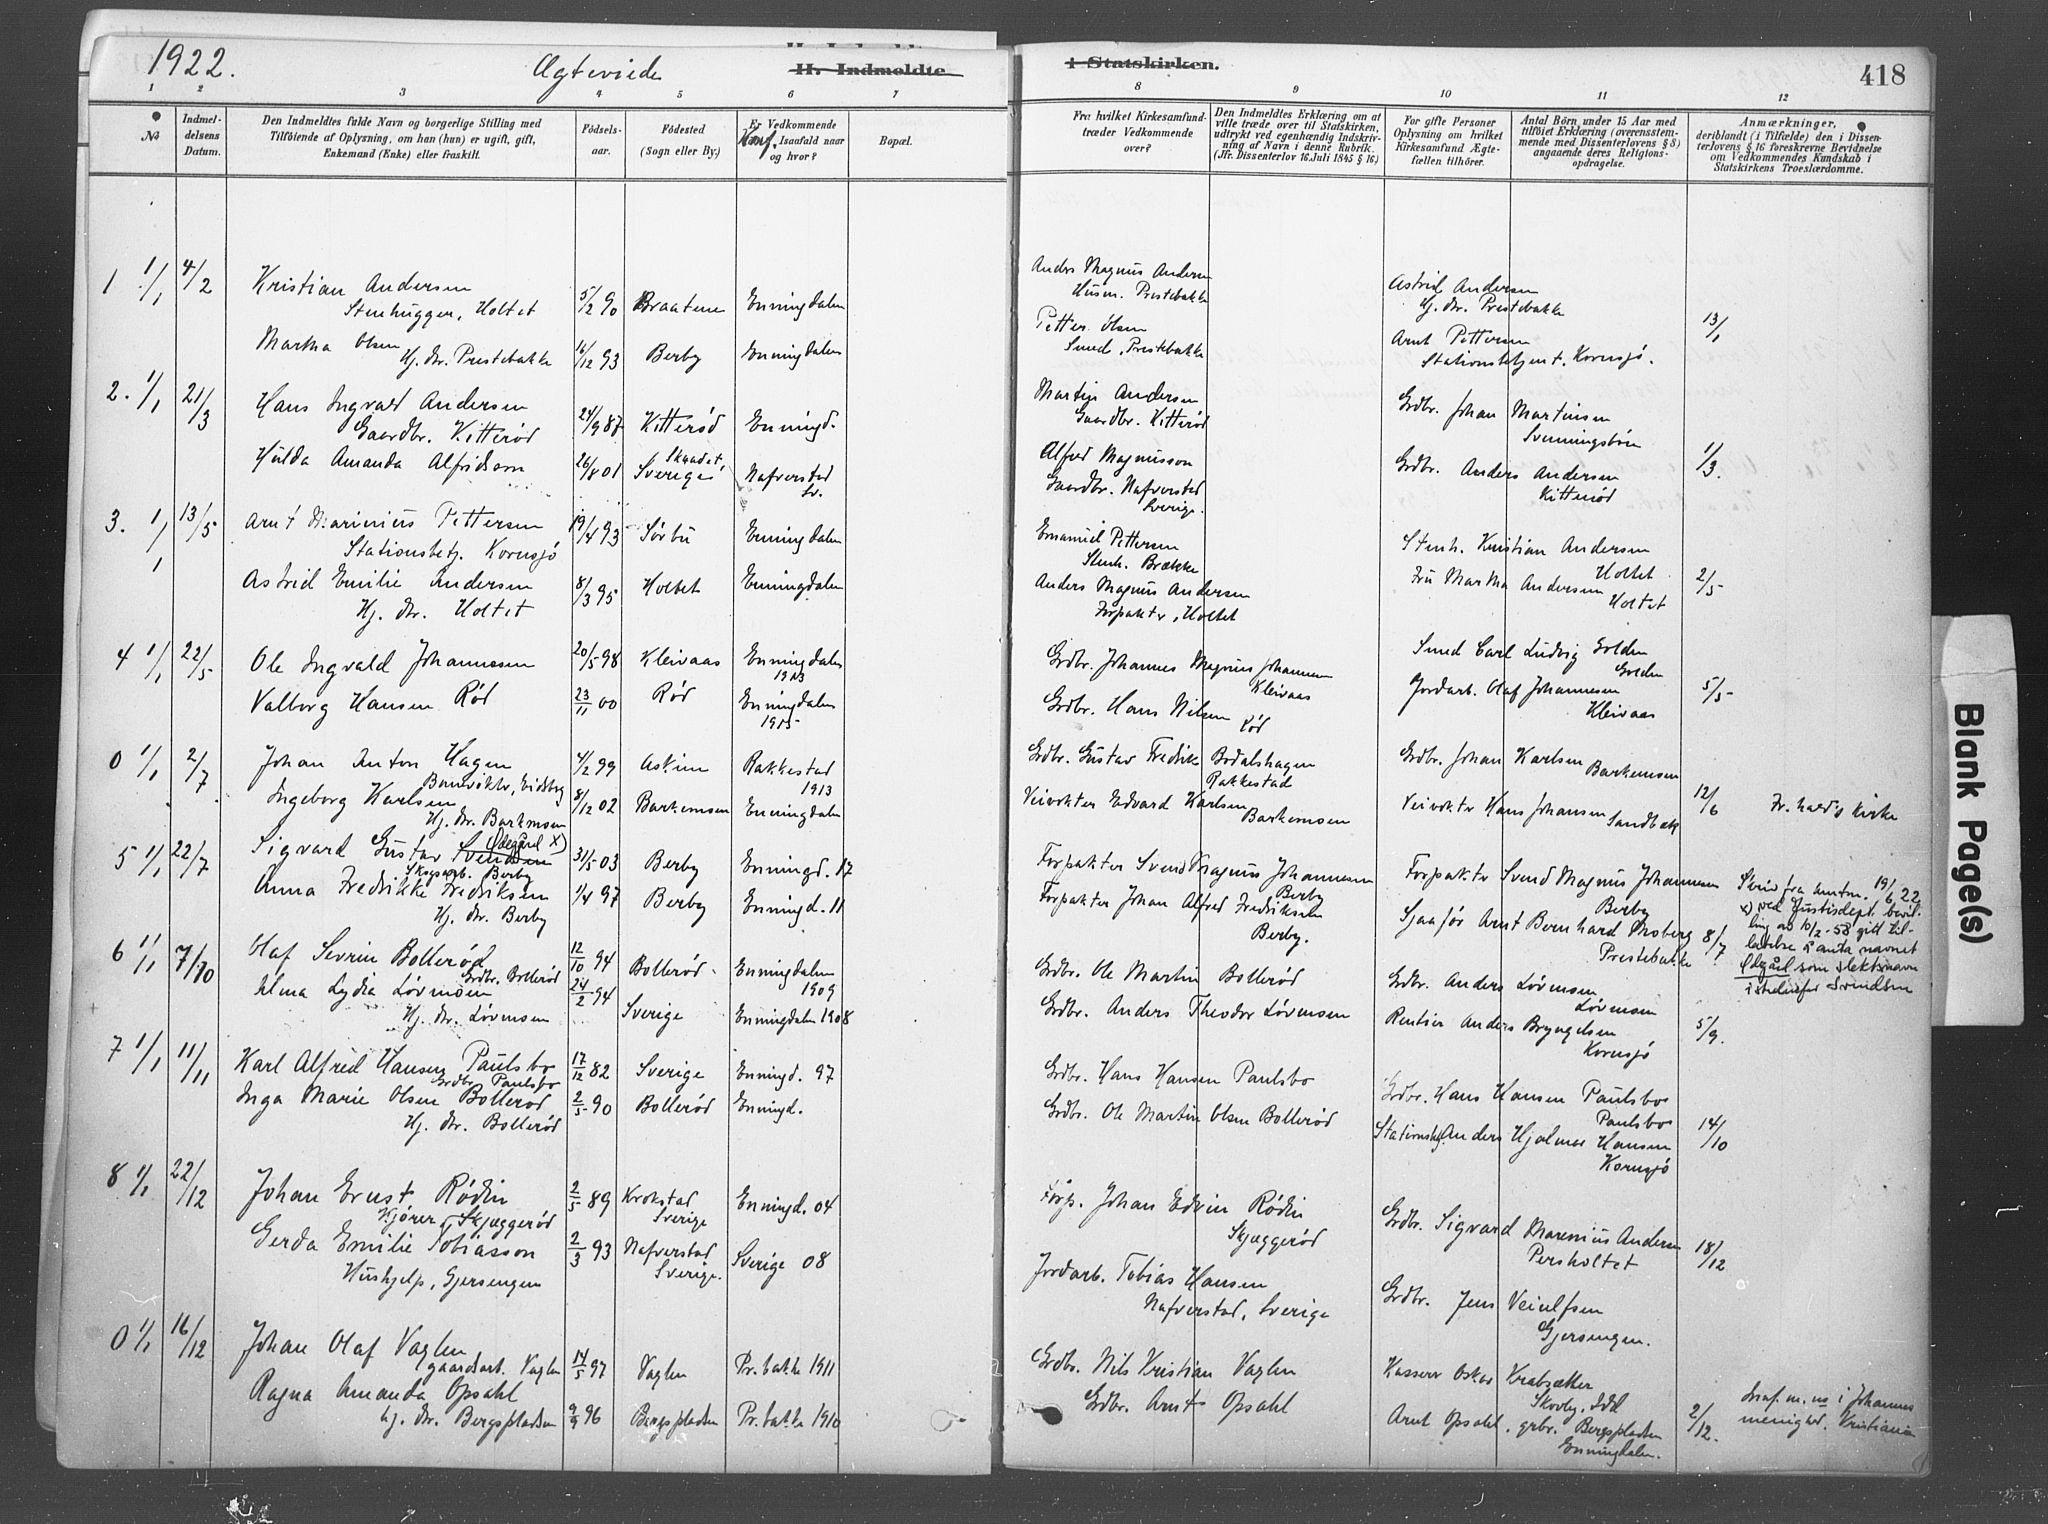 1922.
Ægteviede
H. Indmeldte
i Statskirken.
418
1 2 3 4 5 6 7 8 9 10 11 12
No
Indmeldelsens Datum.
Den Indmeldtes fulde Navn og borgerlige Stilling med
Tilföiende af Oplysning, om han (hun) er ugift, gift,
Enkemand (Enke) eller fraskilt.
Födselsaar.
Födested
(Sogn eller By.)
Er Vedkommende
Konf. Isaafald naar
og hvor?
Bopæl.
Fra hvilket Kirkesamfund
træder Vedkommende
over?
Den Indmeldtes Erklæring om at
ville træde over til Statskirken,
udtrykt ved egenhændig Indskrivning
af Navn i denne Rubrik.
(Jfr. Dissenterlov 16 Juli 1845 § 16)
For gifte Personer
Oplysning om hvilket
Kirkesamfund Ægtefællen
tilhörer.
Antal Börn under 15 Aar med
tilföiet Erklæring (overensstemmende
med Dissenterlovens § 8)
angaaende deres Religionsopdragelse.
Anmærkninger,
deriblandt (i Tilfælde) den i Dissenterlovens
§ 16 foreskrevne Bevidnelse
om Vedkommendes Kundskab i
Statskirkens Troeslærdomme.
1 1/1 4/2 Kristian Andersen 5/2 90 Braatene Enningdalen
Stenhugger, Holtet
Anders Magnus Andersen
Husm. Prestebakke
Astrid Andersen
Hj. dr. Prestebakke
Martha Olsen 16/12 93 Berby Enningdalen
Hj. dr. Prestebakke
Petter Olsen
Smed, Prestebakke
Arnt Pettersen
Stationsbetjent, Kornsjø.
13/1
2. 1/1 21/3 Hans Ingvald Andersen 24/9 87 Kitterød Enningd.
Gaardbr. Kitterød
Martin Andersen
Gaardbr. Kitterød
Grdbr. Johan Martinsen
Svenningsbøen
Hulda Amanda Alfridsson 26/8 01 Sverige Nafverstad
Sv.
Alfred Magnusson
Gaardbr. Nafverstad
Sverige.
Grdbr. Anders Andersen
Kitterød
1/3.
3. 1/1 13/5 Arnt Marinius Pettersen 19/4 93 Sørbü Enningdalen
Stationsbetj. Kornsjø
Emanuel Pettersen
Stenh. Brække
Stenh. Kristian Andersen
Holtet
Astrid Emilie Andersen 8/3 95 Holtet Enningdalen
Hj. dr. Holtet
Anders Magnus Andersen
Forpakter, Holtet
Fru Martha Andersen
Holtet
2/5
4 1/1 22/5 Ole Ingvald Johannesen 20/5 98 Kleivaas Enningdalen
1913
Grdbr. Johannes Magnus Johannesen
Kleivaas
Smed Carl Ludvig Golden
Golden
Valborg Hansen Rød 23/11 00 Rød Enningdalen
1915
Grdbr. Hans Nilsen
Rød
Jordarb. Olaf Johannesen
Kleivaas
5/5
0 1/1 2/7 Johan Anton Hagen 4/2 99 Askim Rakkestad
1913
Banevokter, Eidsberg
Grdbr. Gustav Fredrik Bodalshagen
Rakkestad
Grdbr. Johan Karlsen
Barkemosen
Ingeborg Karlsen 8/12 02 Barkemosen Enningdalen
Hj. dr. Barkmosen
Veivokter Edvard Karlsen
Barkemosen
Veivokter Hans Johansen
Sandbæk
12/6
Fr. hald's Kirke
5 1/1 22/7 Sigvard Gustav Svendsen Ødegård X) 31/5 03 Berby Enningd. 17
Skogsarb. Berby
Forpakter Svend Magnus Johannesen
Berby
Forpakter Svend Magnus Johannesen
Berby
Anna Fredrikke Fredriksen 1/4 97 Berby Enningd. 11
Hj. dr. Berby
Forpakter Johan Alfred Fredriksen
Berby.
Sjaafør Arnt Bernhard Moberg
Prestebakke
8/7
Skriv fra amtm. 19/6 22
x) ved Justisdept. bevilling
av 10/2-53 gitt tillatelse
å anta navnet
Ødegård som slektsnavn
istedenfor Svendsen
6 1/1 7/10 Olaf Severin Bollerød 12/10 94 Bollerød Enningdalen
1909
Grdbr. Bollerød
Grdbr. Ole Martin Bollerød
Grdbr. Anders Løvmosen
Løvmosen
Alma Lydia Løvmosen 24/2 94 Sverige Enningdalen 1908
Hj. dr. Løvmosen
Grdbr. Anders Theodor Løvmosen
Rentier Anders Bryngelsen
Kornsjø
5/9.
7 1/1 11/11 Karl Alfred Hansen Paulsbo 17/12 82 Sverige Enningd. 97
Grdbr. Paulsbo
Grdbr. Hans Hansen Paulsbo
Grdbr. Hans Hansen Paulsbo
Paulsbo
Inga Marie Olsen Bollerød 2/5 90 Bollerød Enningd.
Hj. dr. Bollerød
Grdbr. Ole Martin Olsen Bollerød
Stationsbtj. Anders Hjalmar Hansen
Kornsjø
14/10
8 1/1 22/12 Johan Ernst Rødin 2/5 89 Krokstad Enningd. 04
Sverige
Kjører, Skjæggerød
Forp. Johan Edvin Rødin
Skjæggerød
Grdbr. Sigvard Marenius Andersen
Persholtet
Gerda Emilie Tobiasson 2/3 93 Nafverstad Sverige 08
Sverige.
Hushjelp, Gjersengen
Jordarb. Tobias Hansen
Nafverstad, Sverige
Grdbr. Jens Veiulfsen
Gjersengen.
18/12
0 1/1 16/12 Johan Olaf Vaglen 14/5 97 Vaglen Pr. bakke 1911
gaardsarb. Vaglen
Grdbr. Nils Kristian Vaglen
Kasserer Oskar Krabsæther
Skovby, Idd
Ragna Amanda Opsahl 9/9 96 Bergspladsen Pr. bakke 1910
hj. dr. Bergspladsen
Grdbr. Arnt Opsahl
Arnt Opsahl, grbr. Bergspladsen
Enningdalen.
2/12.
i Johannes
menighed. Kristiania
Blank Page(s)